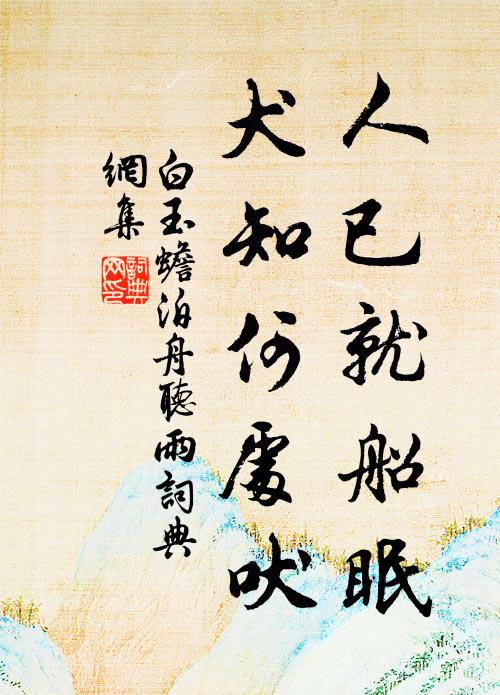 人已就船眠
犬知何處吠
白玉蟾泊舟聽雨詞典
網集
詞典
网印